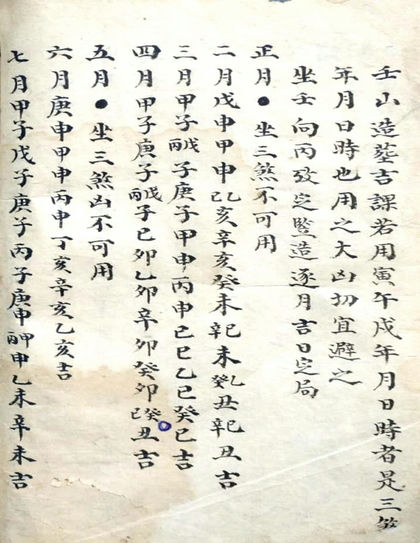 壬山造葬吉課若用寅午戌年月日時者是三煞
年月日時也用之大凶切宜避之
坐壬向丙竪造逐月吉日定局
正月●坐三煞不可用
二月戊申甲申己亥乙亥辛亥癸未辛未己未癸丑乙丑辛丑己丑吉
三月甲子丙子戊子庚子甲申丙申己巳乙巳癸巳吉
四月甲子庚子丙子戊子己卯乙卯辛卯癸卯己丑癸丑吉
五月●坐三煞凶不可用
六月庚申甲申丙申丁亥辛亥乙亥吉
七月甲子戊子庚子丙子庚申丙申甲申乙未辛未吉